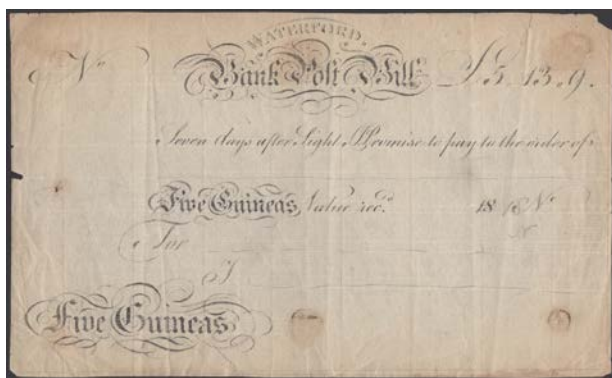 WATERFORD.
No Bank Post Bill £5.13.9.
Seven days after Sight I Promise to pay to the order of
Five Guineas Value recd. 18
For
£
Five Guineas